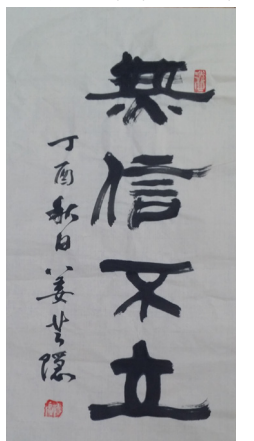 無信不立
丁酉秋日姜芸隱